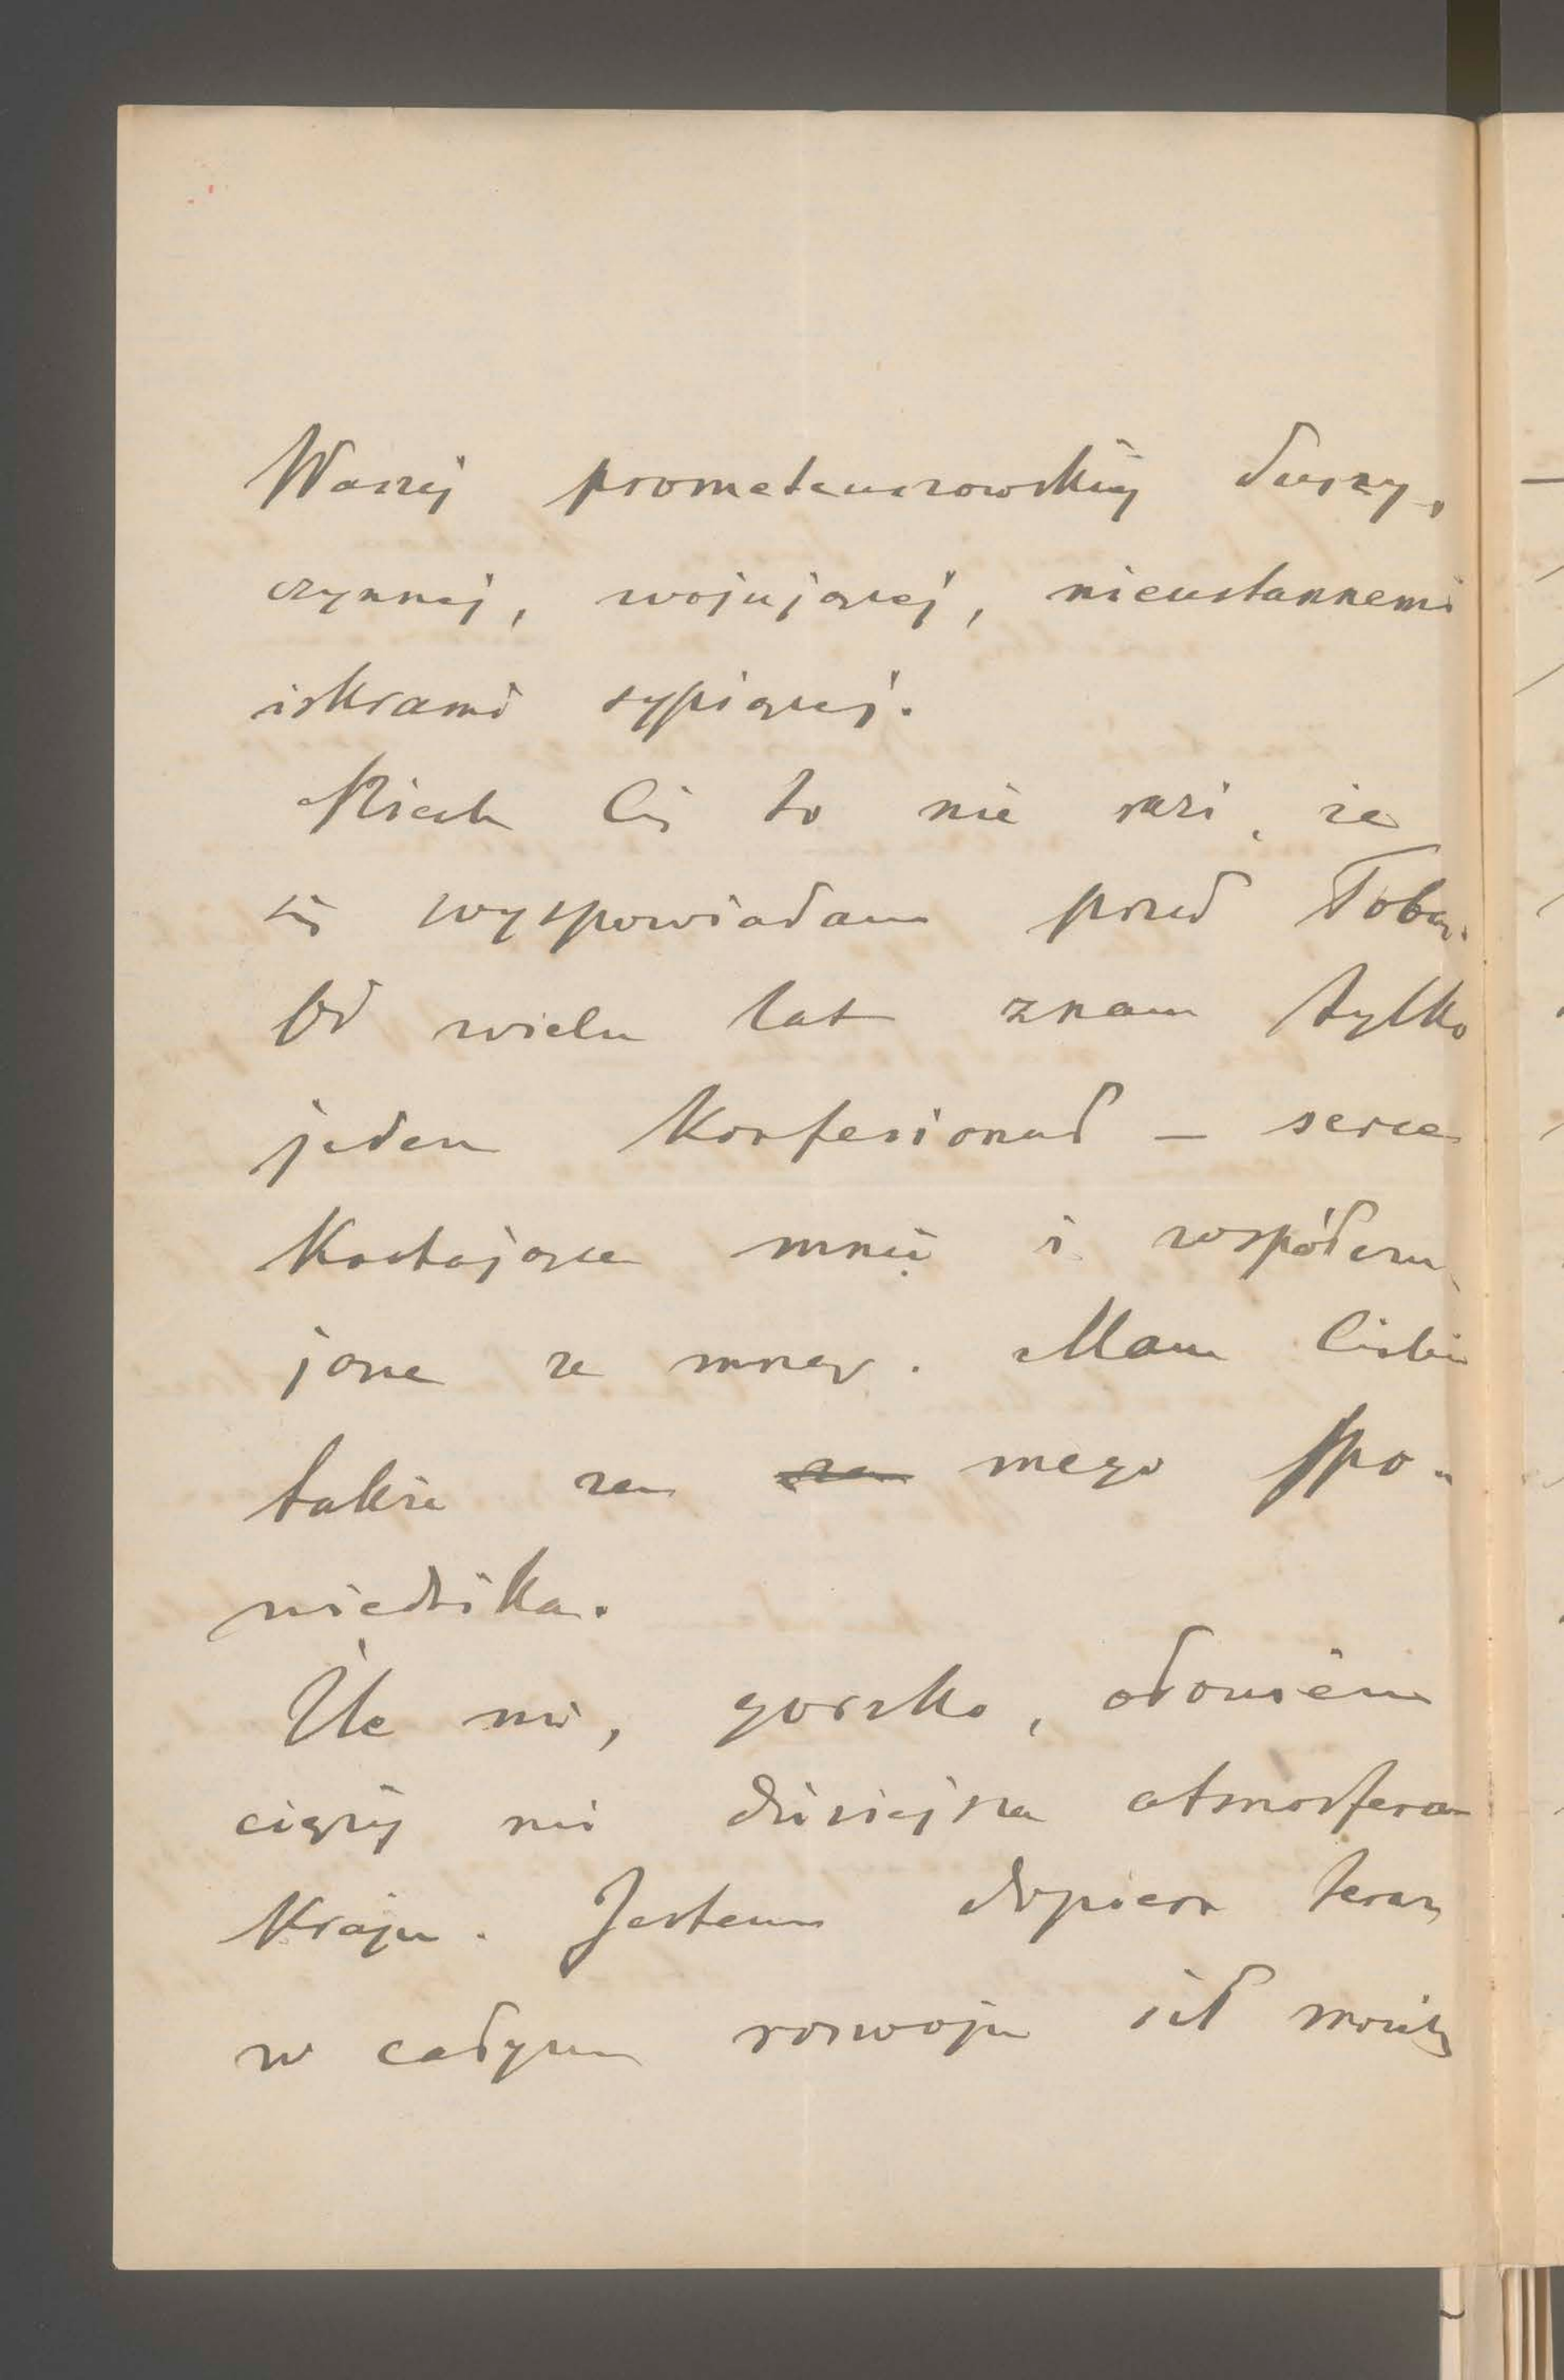 Waszej prometeuszowskiej duszy,
czynnej, wojującej, nieustannemi
iskrami sypiącej.
Niech Cię to nie razi, że
się wyspowiadam przed Tobą.
Od wielu lat znam tylko
jeden konfesionał — serce
kochające mnie i współczu-
jące ze mną. Mam Ciebie
także za za mego spo-
wiednika.
Źle mi, gorzko, ołowiem
cięży mi dzisiejsza atmosfera
kraju. Jestem dopiero teraz
w całym rozwoju sił moich